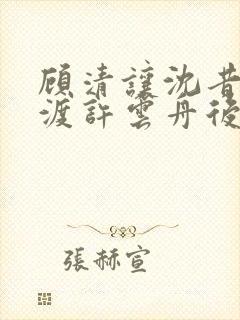 顧清讓沈昔
渡許雲丹後
張赫宣